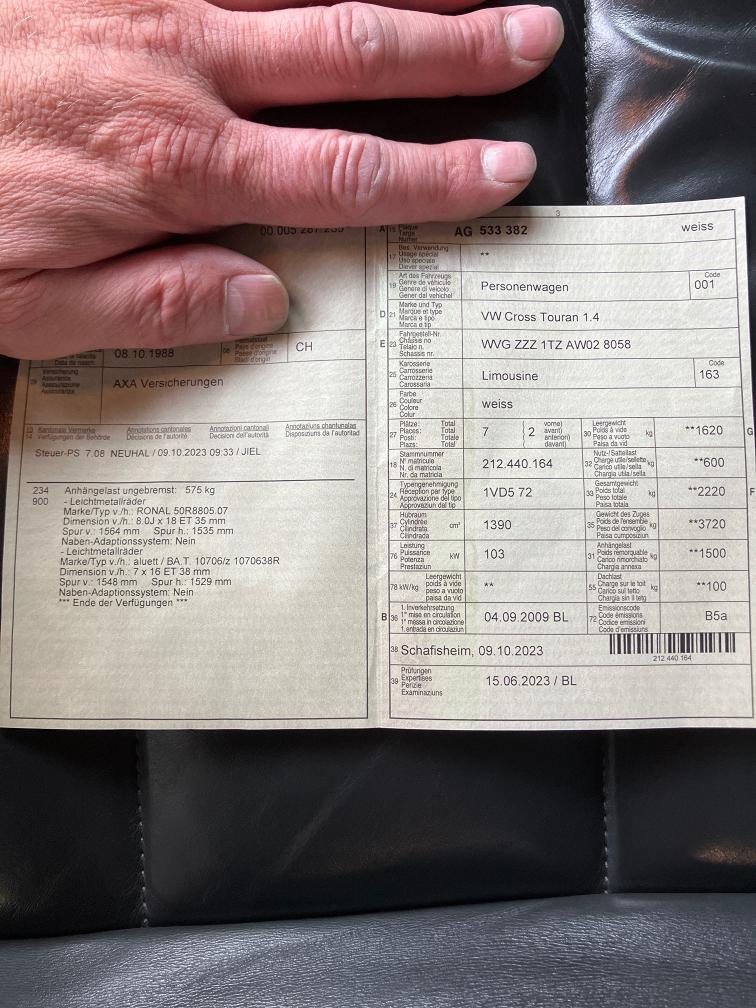 3
08.10.1988
CH
09 Versicherung
Assurance
Assicurazione
Assicuranza
AXA Versicherungen
13 Kantonale Vermerke Annotations cantonales Annotazioni cantonali Annotaziuns chantunalas
14 Verfügungen der Behörde Décisions de l'autorité Decisioni dell'autorità Disposiziuns da l'autoritad
Steuer-PS 7.08 NEUHAL / 09.10.2023 09:33 / JIEL
234 Anhängelast ungebremst: 575 kg
900 - Leichtmetallräder
Marke/Typ v./h.: RONAL 50R8805.07
Dimension v./h.: 8.0J x 18 ET 35 mm
Spur v.: 1564 mm Spur h.: 1535 mm
Naben-Adaptionssystem: Nein
- Leichtmetallräder
Marke/Typ v./h.: aluett / BA.T. 10706/z 1070638R
Dimension v./h.: 7 x 16 ET 38 mm
Spur v.: 1548 mm Spur h.: 1529 mm
Naben-Adaptionssystem: Nein
*** Ende der Verfügungen ***
A 15 Plaque
Targa
Numer
AG 533 382 weiss
17 Bes. Verwendung
Usage spécial
Uso speciale
Diever spezial
**
19 Art des Fahrzeugs
Genre de véhicule
Genere di veicolo
Gener dal vehichel
Personenwagen
Code
001
D 21 Marke und Typ
Marque et type
Marca e tipo
Marca e tip
VW Cross Touran 1.4
E 23 Fahrgestell-Nr.
Châssis no
Telaio n.
Schassis nr.
WVG ZZZ 1TZ AW02 8058
25 Karosserie
Carrosserie
Carrozzeria
Carossaria
Limousine
Code
163
26 Farbe
Couleur
Colore
Colur
weiss
27 Plätze: Total
Places: Total
Posti: Totale
Plazs: Total
7 (2 vorne)
avant)
anteriori)
davant)
30 Leergewicht
Poids à vide
Peso a vuoto
Paisa da vid
kg
**1620
G
18 Stammnummer
N° matricule
N. di matricola
Nr. da matricla
212.440.164
32 Nutz-/Sattellast
Charge utile/sellette
Carico utile/sella
Chargia utila/sella
kg
**600
24 Typengenehmigung
Réception par type
Approvazione del tipo
Approvaziun dal tip
1VD5 72
33 Gesamtgewicht
Poids total
Peso totale
Paisa totala
kg
**2220
F
37 Hubraum
Cylindrée
Cilindrata
Cilindrada
cm³
1390
35 Gewicht des Zuges
Poids de l'ensemble
Peso del convoglio
Paisa cumposiziun
kg
**3720
76 Leistung
Puissance
Potenza
Prestaziun
kW
103
31 Anhängelast
Poids remorquable
Carico rimorchiato
Chargia annexa
kg
**1500
78 kW/kg Leergewicht
poids à vide
peso a vuoto
paisa da vid
**
55 Dachlast
Charge sur le toit
Carico sul tetto
Chargia sin il tetg
kg
**100
B 36 1. Inverkehrsetzung
1re mise en circulation
1a messa in circolazione
1. entrada en circulaziun
04.09.2009 BL
72 Emissionscode
Code émissions
Codice emissioni
Code d'emissiuns
B5a
38 Schafisheim, 09.10.2023
212 440 164
39 Prüfungen
Expertises
Perizie
Examinaziuns
15.06.2023 / BL